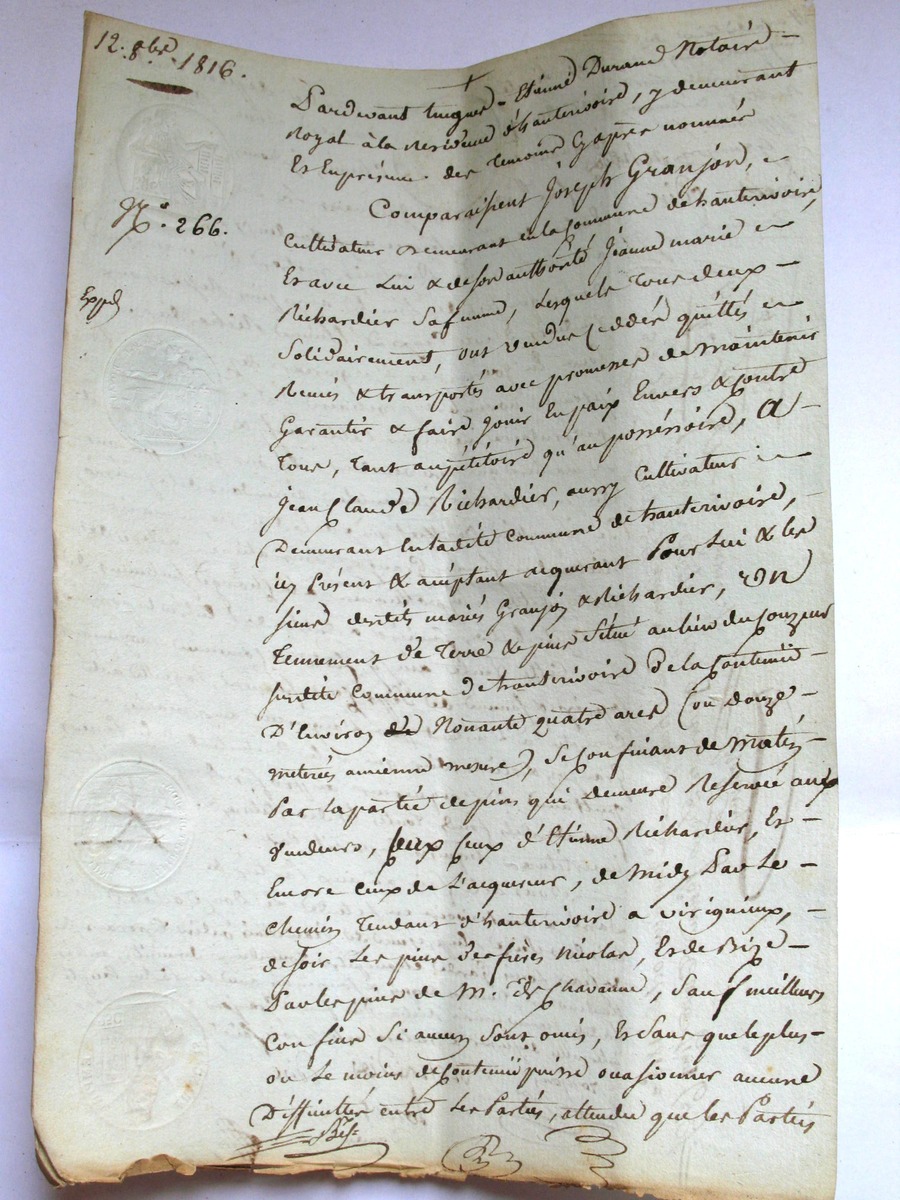 12. 8bre. 1816.
Pardevant hugue-Etienne Durand Notaire
Royal à la Residence d'hauterivoire, y demeurant
Et Enprésence des temoins Cyaprès nommés
Nº. 266.
Comparaissent Joseph Granjon,
Cultivateur Demeurant en la Commune de hauterivoire
Et avec Lui & de son authorité Jeanne marie
Expédé
Richardier Safemme, Lesquels Tous deux
Solidairement, ont vendus Ceddés quittés
Remis & transportés avec promesse de Maintenir
Garantir & faire Jouir En paix Envers & Contre
Tous, Tant aupétitoire qu'au possessoire, A
Jean Claude Richardier, aussy Cultivateur
Demeurant Enladite Commune de hauterivoire,
icy Présent & acceptant acquerant Pour Lui & les
siens desdits mariés Granjon & Richardier, UN
Tennement De Terre & pins Situé au lieu du
susdite Commune De hauterivoire De la Contenue
D'Environ de Nonante quatre ares (ou douze
meterées ancienne mesure), Se Confinant de Matin
Par la partie de pins qui demeure Reservée aux
Vendeurs, Ceux d'Etienne Richardier, Et
Encore Ceux de L'acquereur, de Midy Par Le
Chemin Tendant d'hauterivoire a virigneux,
de soir Les pins des frères Nicolas, Et de Bize
Par les pins de M. De Chavanne, Sauf meilleurs
Confins Si aucuns Sont omis, Et Sans que le plus
ou Le moins de Contenue puisse occasionner aucune
Difficultés entre Les Parties, attendu que les Parties